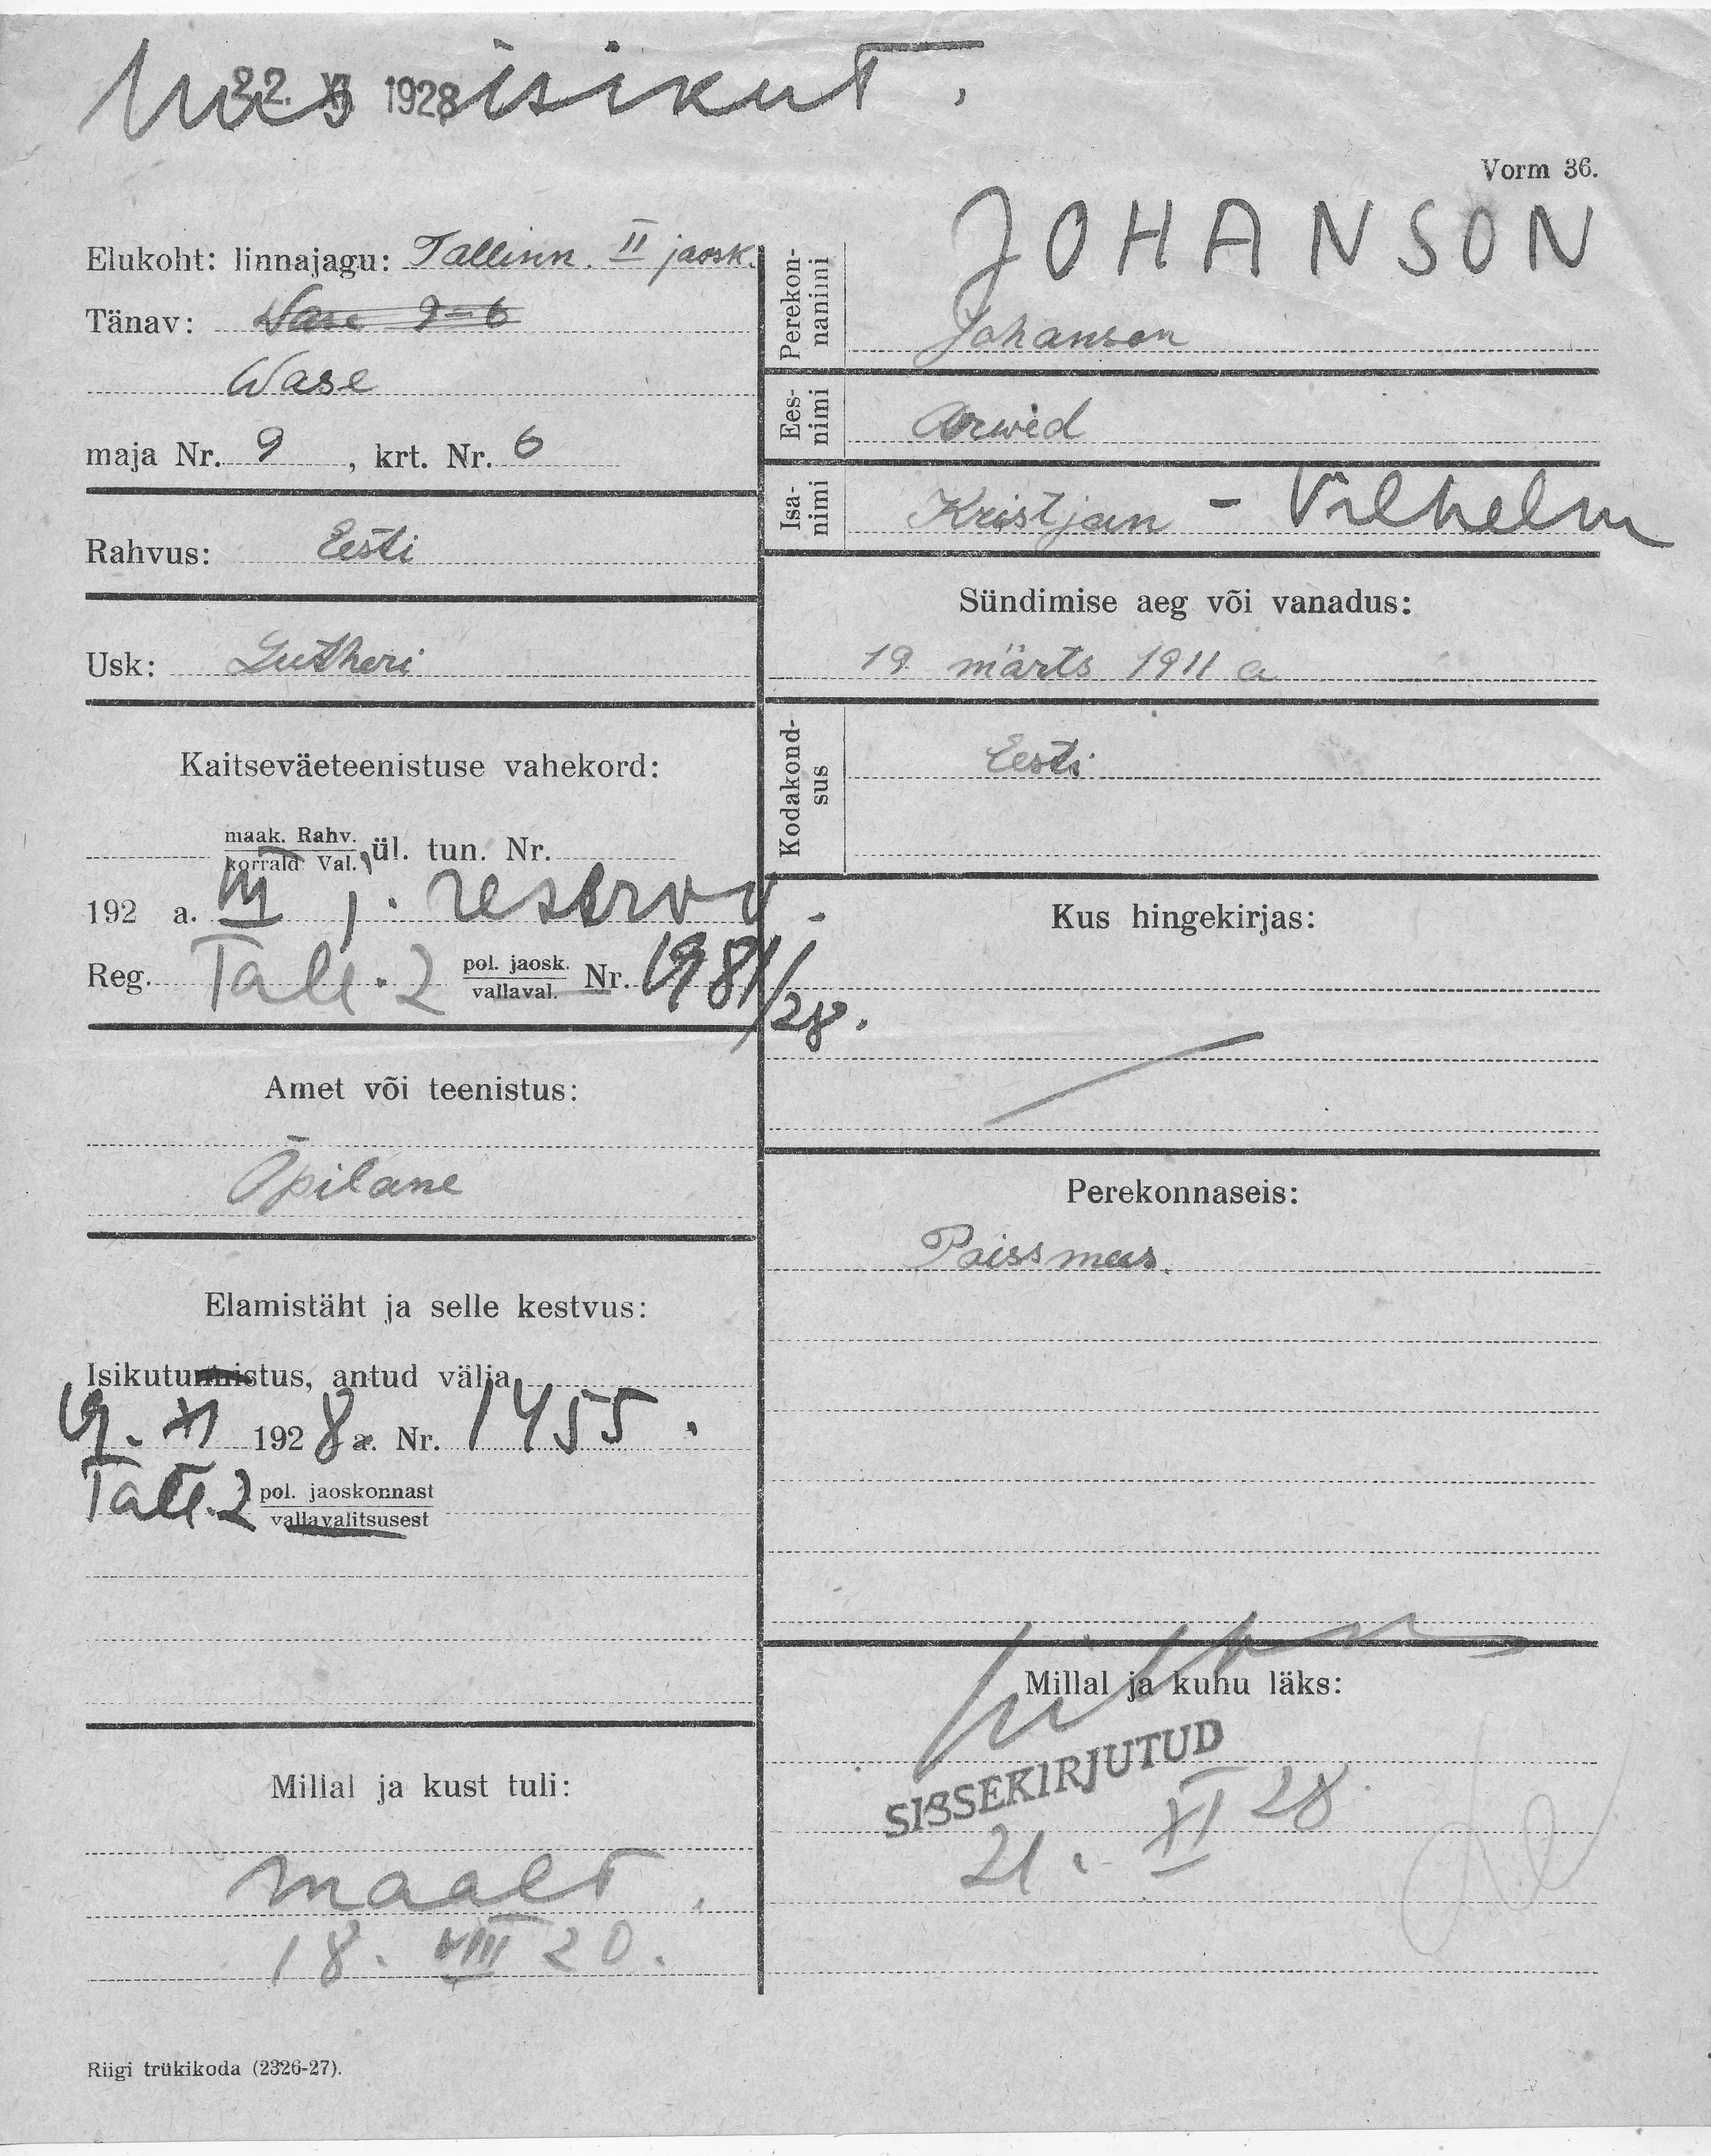 22. XI 1928
Uus isikut.
Vorm 36.
Elukoht: linnajagu: Tallinn. II jaosk.
Tänav: Wase 9-6
Wase
maja Nr. 9, krt. Nr. 6
Rahvus: Eesti
Usk: Lutheri
Kaitseväeteenistuse vahekord:
maak. Rahv.
korrald Val. ül. tun. Nr.
192 a. III j. reservv.
Reg. Tall. 2 pol. jaosk. Nr. 1981/28.
vallaval.
Amet või teenistus:
Õpilane
Elamistäht ja selle kestvus:
Isikutunnistus, antud välja
19. XI 1928 a. Nr. 1455.
Tall. 2 pol. jaoskonnast
vallavalitsusest
Millal ja kust tuli:
maalt.
18. VIII 20.
Riigi trükikoda (2326-27).
JOHANSON
Perekon-
nanimi
Johanson
Ees-
nimi
Arwid
Isa-
nimi
Kristjan - Vilhelm
Sündimise aeg või vanadus:
19. märts 1911 a
Kodakond-
sus
Eesti
Kus hingekirjas:
Perekonnaseis:
Poissmees.
Millal ja kuhu läks:
SISSEKIRJUTUD
21. XI 28.